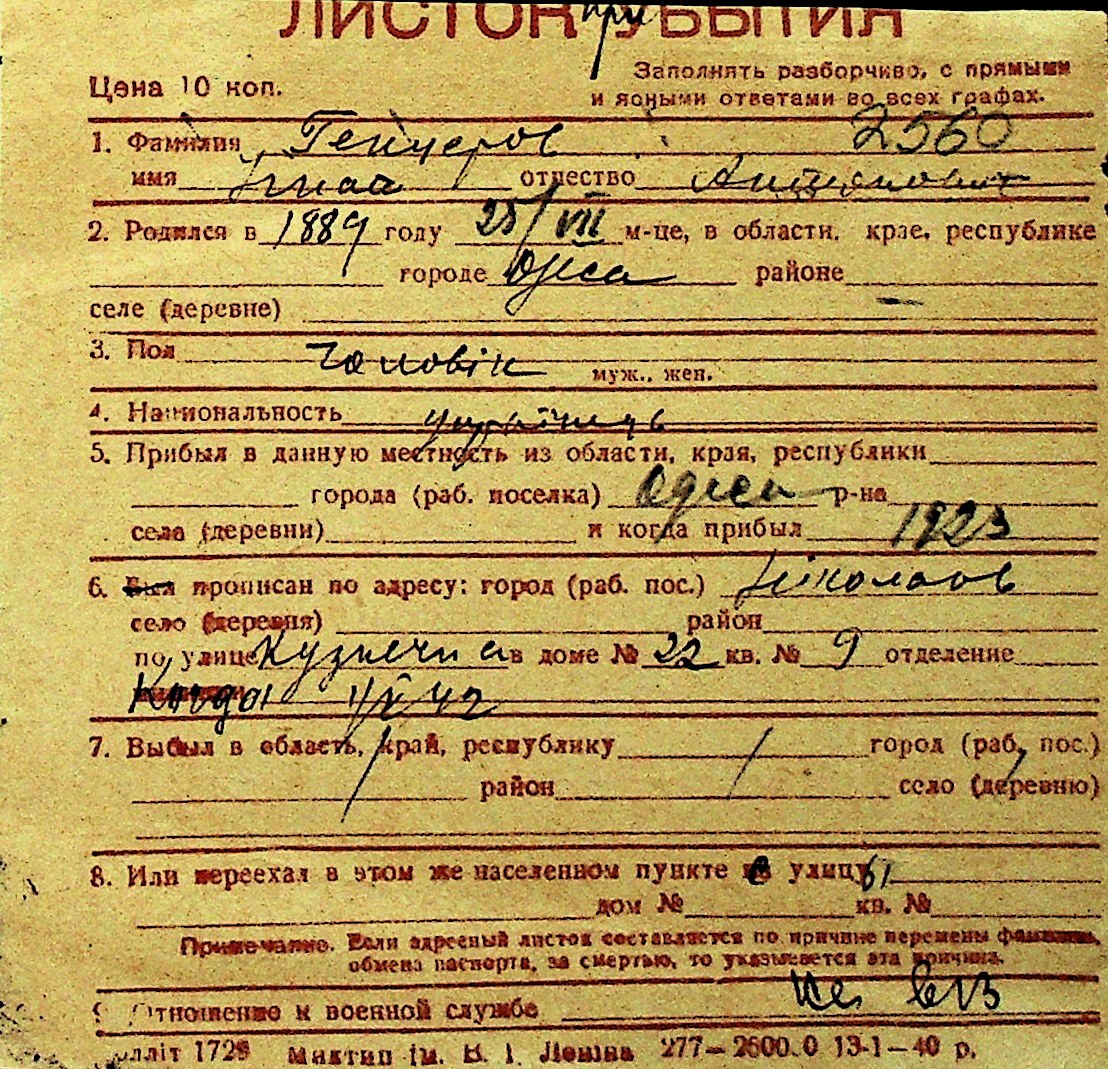 ЛИСТОК при УБЫТИЯ
Цена 10 коп.
Заполнять разборчиво, с прямыми
и ясными ответами во всех графах.
1. Фамилия Генчеров 2560
имя Гнат отчество Антонович
2. Родился в 1889 году 25/VII м-це, в области, крае, республике
городе Одеса районе
селе (деревне) —
3. Пол чоловік муж., жен.
4. Национальность українець
5. Прибыл в данную местность из области, края, республики
города (раб. поселка) Одеса р-на
села (деревни) и когда прибыл 1923
6. Был прописан по адресу: город (раб. пос.) Ніколаов
село (деревня) район
по улице Кузнечна в доме № 22 кв. № 9 отделение
Когда 1/V 42
7. Выбыл в область, край, республику / город (раб. пос.)
район село (деревню)
8. Или переехал в этом же населенном пункте с улицы
дом № кв. №
Примечание. Если адресный листок составляется по причине перемены фамилии,
обмена паспорта, за смертью, то указывается эта причина.
9. Отношение к военной службе не в/з
лліт 1729 Миктип ім. В. І. Леніна 277—2600.0 13-1—40 р.